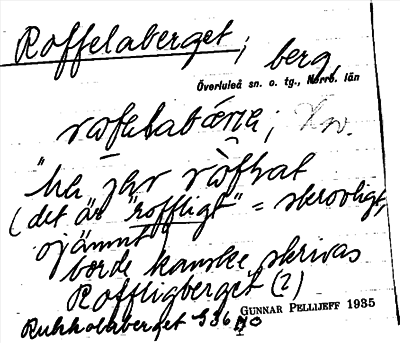 Roffelaberget; berg,
Överluleå sn. o. tg., Norrb. län
"he jär
(det är "roffligt" = skrovligt,
ojämnt)
borde kanske skrivas
Roffligberget (?)
GUNNAR PELLIJEFF 1935
Ruhkkolaberget